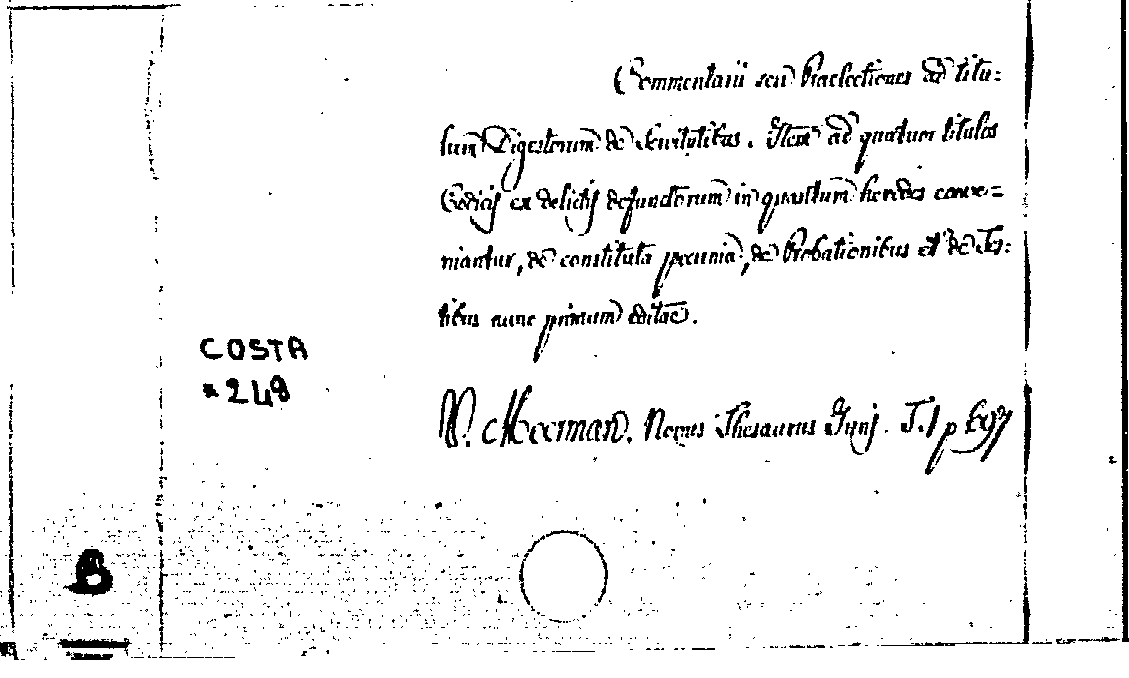 Commentarii seu Praelectiones ad titu=
lum Digestorum de Servitutibus. Item ad quatuor titulos
Codicis ex delictis defunctorum in quantum heredes conve=
niantur, de constituta pecunia, de Probationibus et de Tes=
tibus nunc primum editae.
COSTA
*248
V. Meerman. Novus Thesaurus Jur. T. I p 697
B